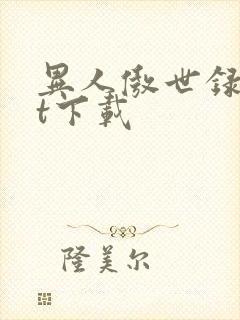 異人傲世録
t下載
隆美尔